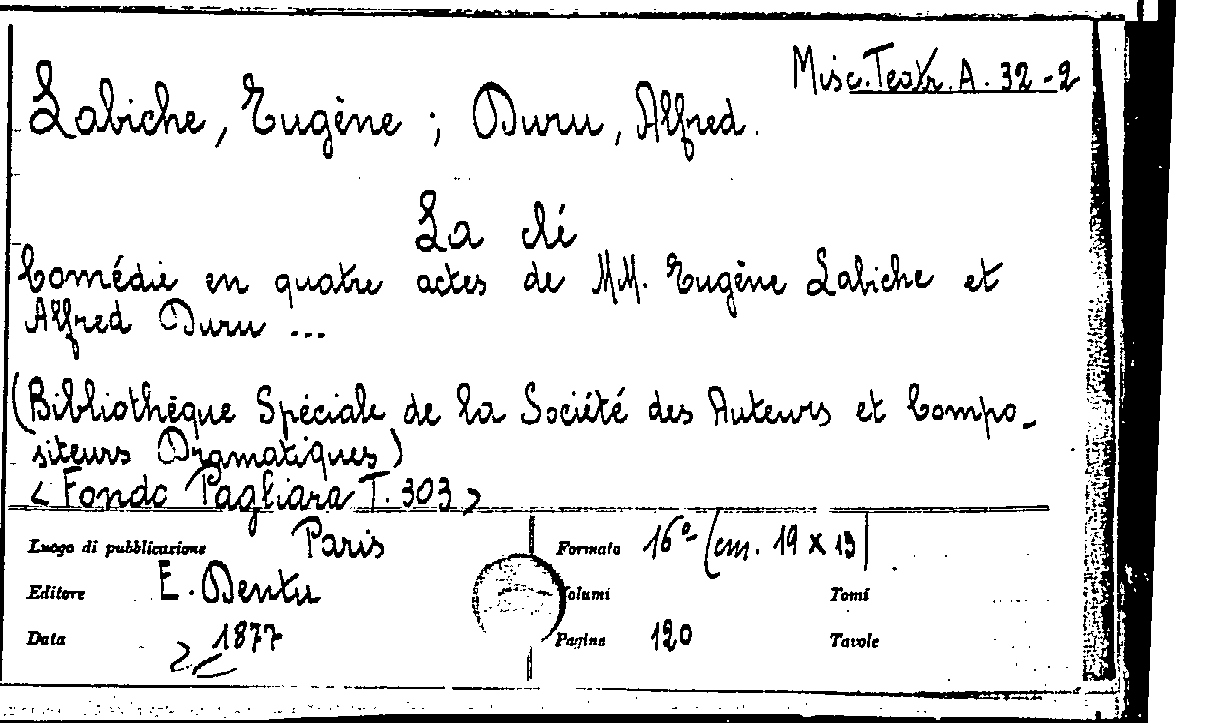 Misc. Teatr. A. 32-2
Labiche, Eugène ; Duru, Alfred.
La clé
Comédie en quatre actes de MM. Eugène Labiche et
Alfred Duru ...
(Bibliothèque Spéciale de la Société des Auteurs et Compo-
siteurs Dramatiques)
<Fondo Pagliara T. 303>
Luogo di pubblicazione Paris Formato 16° (cm. 19 x 13)
Editore E. Dentu Volumi Tomi
Data 1877 Pagine 120 Tavole